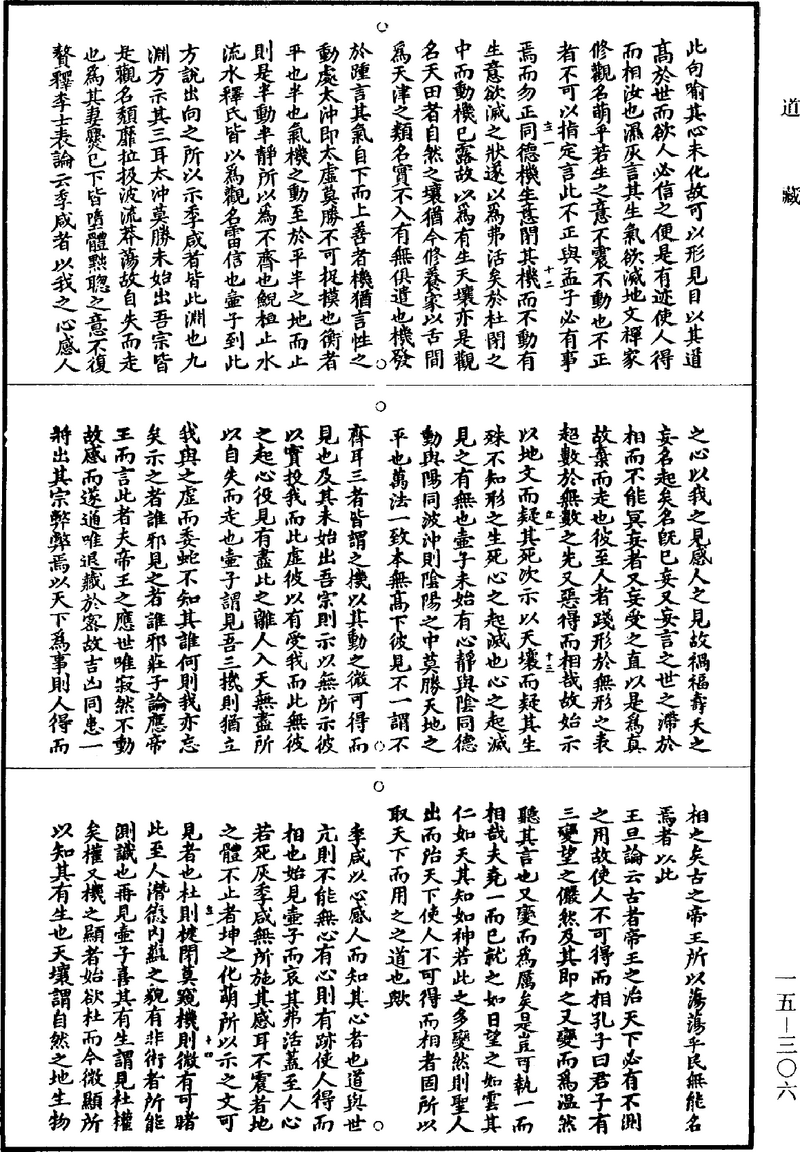 道藏
此句喻其心未化故可以形見目以其道
髙於世而欲人必信之便是有迹使人得
而相汝也濕灰言其生氣欲滅地文禪家
修觀名萌乎若生之意不震不動也不正
者不可以指定言此不正與孟子必有事
焉而勿正同德機生意閉其機而不動有
生意欲滅之狀遂以為弗活矣於杜閉之
中而動機已露故以為有生天壤亦是觀
名天田者自然之壤猶今修養家以舌間
為天津之類名實不入有無俱遣也機發
於踵言其氣自下而上善者機猶言性之
動處太沖即太虛莫勝不可捉摸也衡者
平也半也氣機之動至於平半之地而止
則是半動半靜所以為不齊也鯢桓止水
流水釋氏皆以為觀名雷信也壷子到此
方說出向之所以示季咸者皆此淵也九
淵方示其三耳太沖莫勝未始出吾宗皆
是觀名頹靡拉扱波流莽蕩故自失而走
也為其妻爨已下皆墮體黜聰之意不復
贅釋李士表論云季咸者以我之心感人
之心以我之見感人之見故禍福壽夭之
妄名起矣名旣已妄又妄言之世之滯於
相而不能冥妄者又妄受之直以是為真
故棄而走也彼至人者踐形於無形之表
超數於無數之先又惡得而相哉故始示
以地文而疑其死次示以天壤而疑其生
殊不知形之生死心之起滅也心之起滅
見之有無也壷子未始有心靜與陰同德
動與陽同波沖則陰陽之中莫勝天地之
平也萬法一致本無高下彼見不一謂不
齊耳三者皆謂之機以其動之微可得而
見也及其未始出吾宗則示以無所示彼
以實投我而此虛彼以有受我而此無彼
之起心役見有盡此之離人入天無盡所
以自失而走也壷子謂見吾三機則猶立
我與之虛而委蛇不知其誰何則我亦忘
矣示之者誰邪見之者誰邪莊子論應帝
王而言此者夫帝王之應世唯寂然不動
故感而遂通唯退藏於宻故吉凶同患一
將出其宗弊弊焉以天下為事則人得而
相之矣古之帝王所以蕩蕩乎民無能名
焉者以此
王旦論云古者帝王之治天下必有不測
之用故使人不可得而相孔子曰君子有
三變望之儼然及其即之又變而為温然
聽其言也又變而為厲矣是豈可執一而
相哉夫堯一而已就之如日望之如雲其
仁如天其知如神若此之多變然則聖人
出而治天下使人不可得而相者固所以
取天下而用之之道也歟
季咸以心感人而知其心者也道與世
亢則不能無心有心則有跡使人得而
相也始見壷子而哀其弗活蓋至人心
若死灰季咸無所施其感耳不震者地
之體不止者坤之化萌所以示之文可
見者也杜則楗閉莫窺機則微有可睹
此至人潛德內韞之貌有非術者所能
測識也再見壷子喜其有生謂見杜權
矣權又機之顯者始欲杜而今微顯所
以知其有生也天壤謂自然之地生物
一五—三〇六